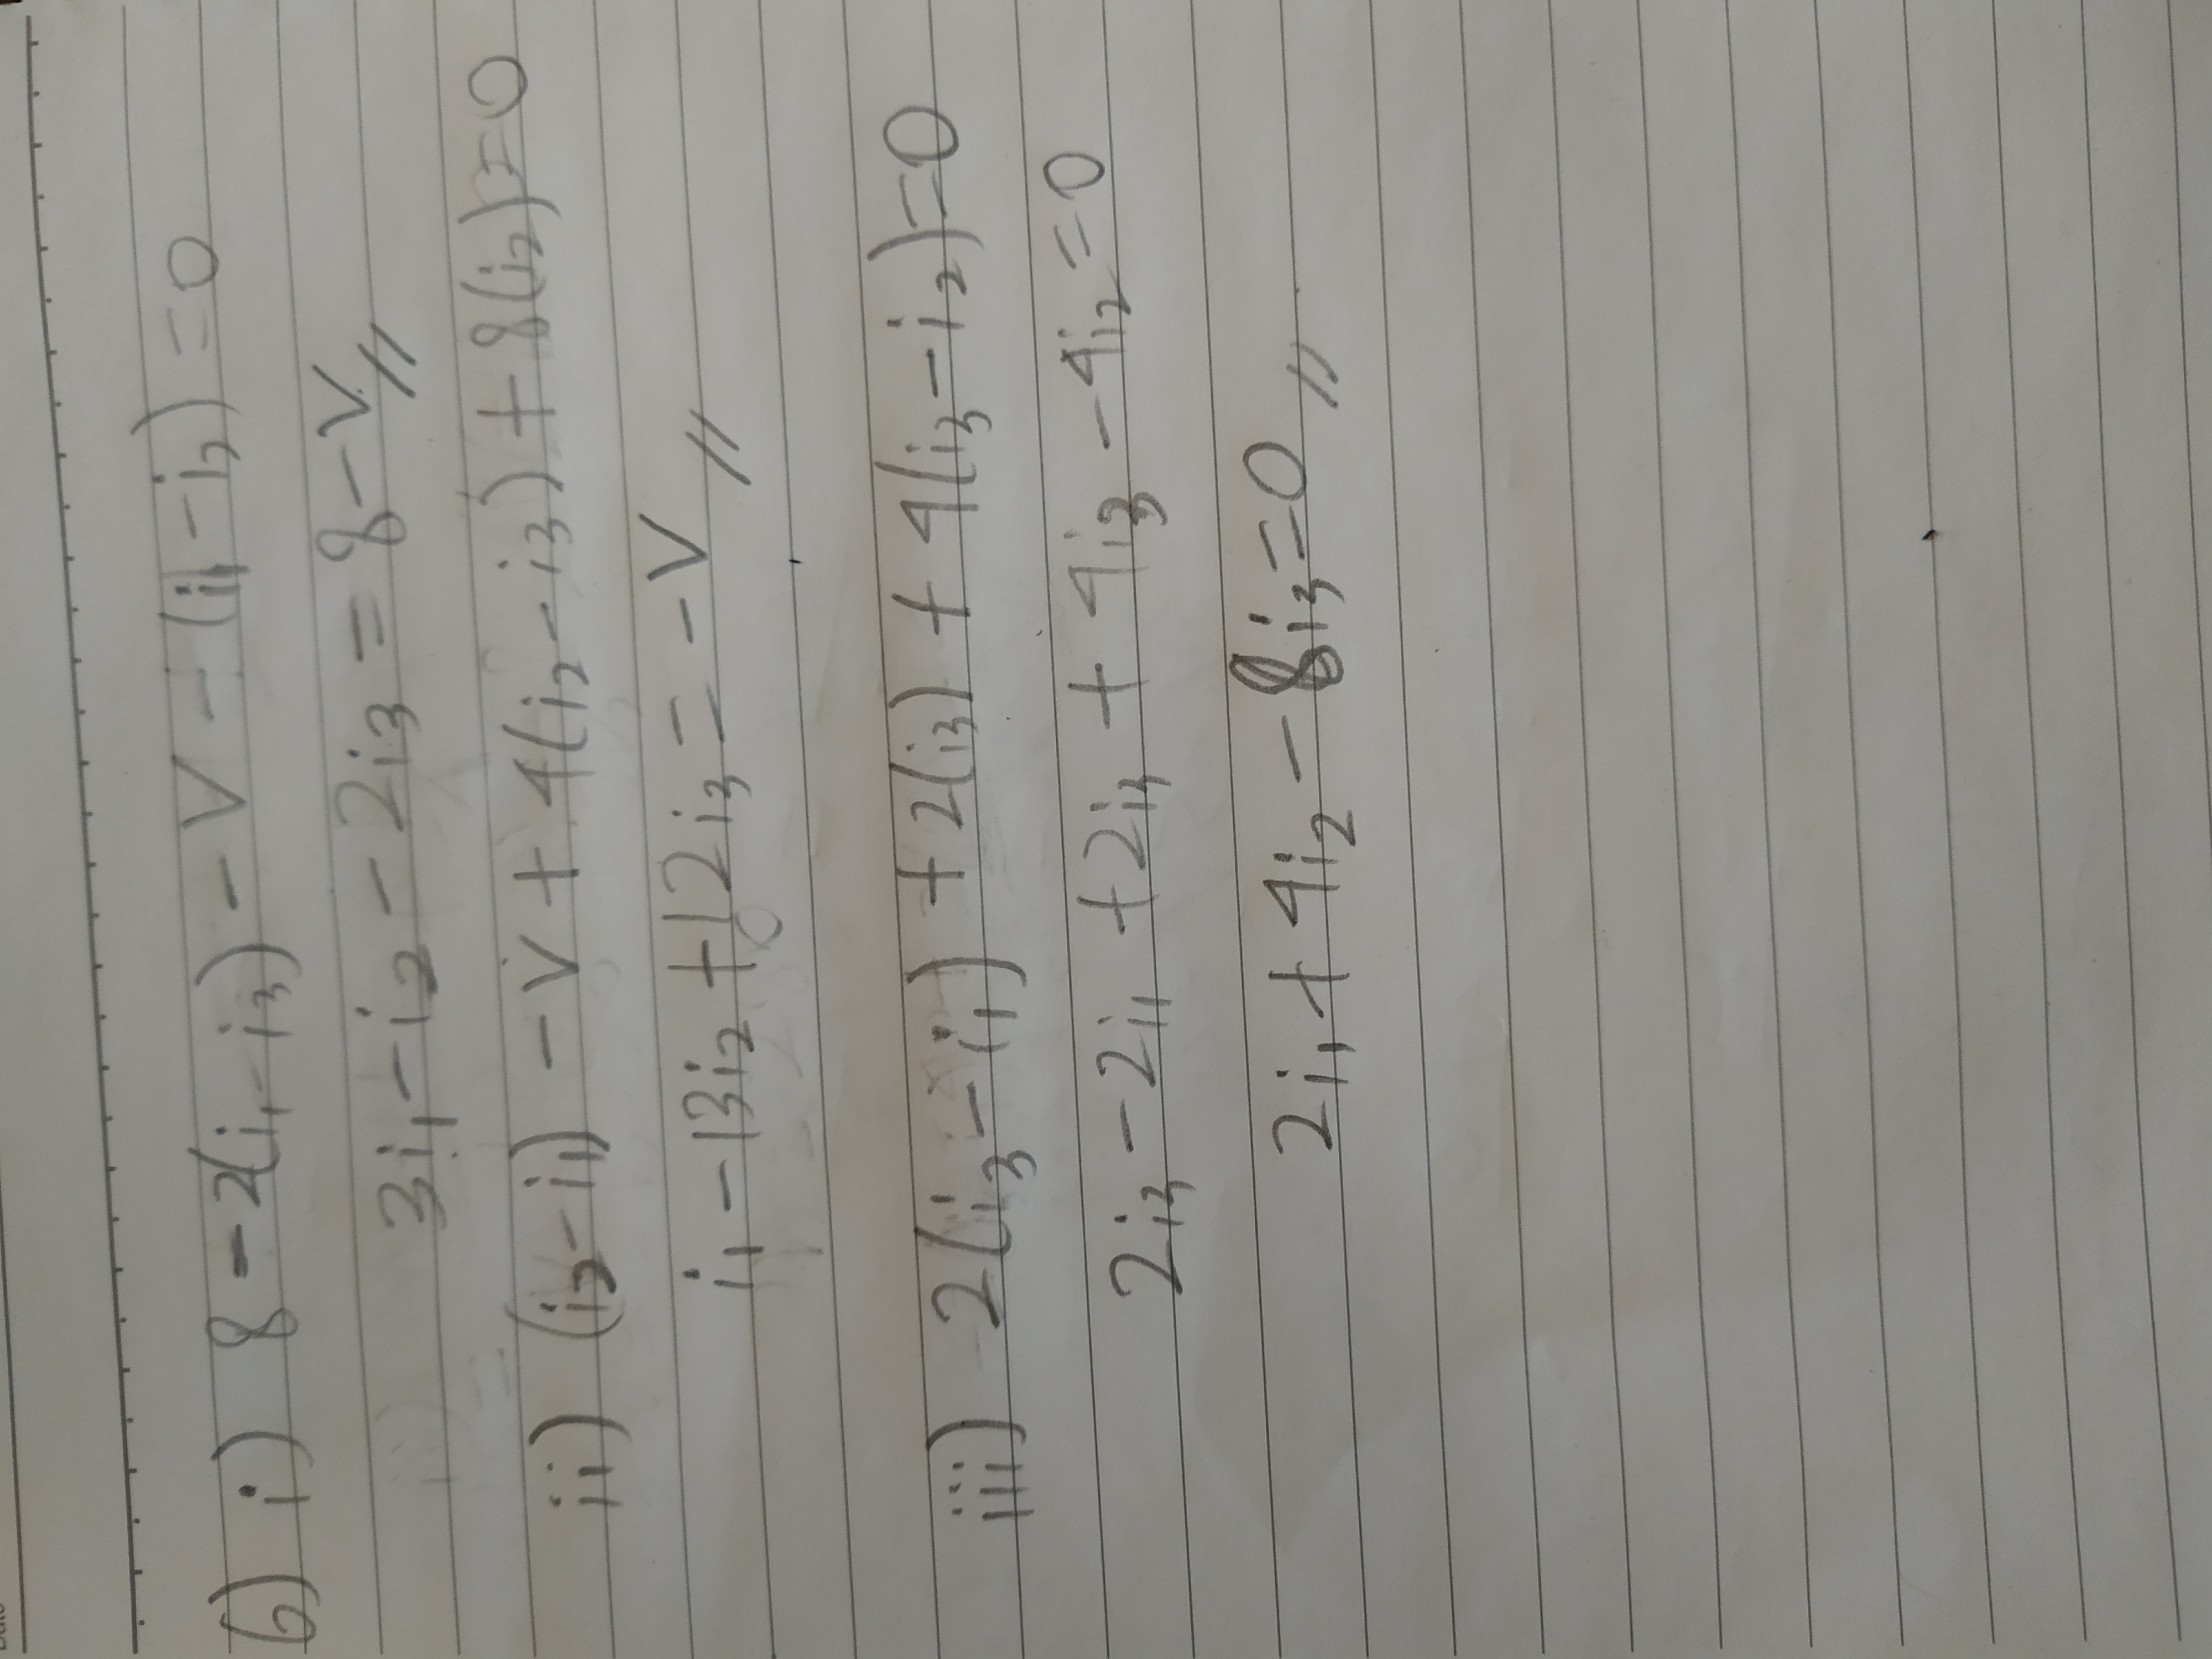 Date
6) i) 8 - 2(i₁ - i₃) - V - (i₁ - i₂) = 0
3i₁ - i₂ - 2i₃ = 8 - V //
ii) (i₂ - i₁) - V + 4(i₂ - i₃) + 8(i₂) = 0
i₁ - 13i₂ + 12i₃ = -V //
iii) 2(i₃ - i₁) + 2(i₃) + 4(i₃ - i₂) = 0
2i₃ - 2i₁ + 2i₃ + 4i₃ - 4i₂ = 0
2i₁ + 4i₂ - 8i₃ = 0 //